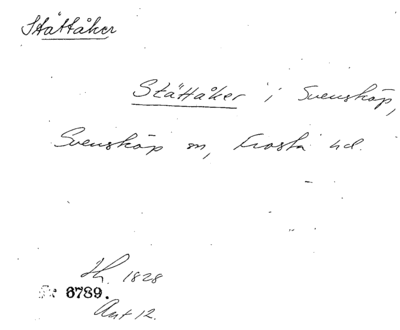 Stättåker
Stättåker i Svensköp,
Svensköp sn, Frosta hd.
1828
6789.
Avt 12.